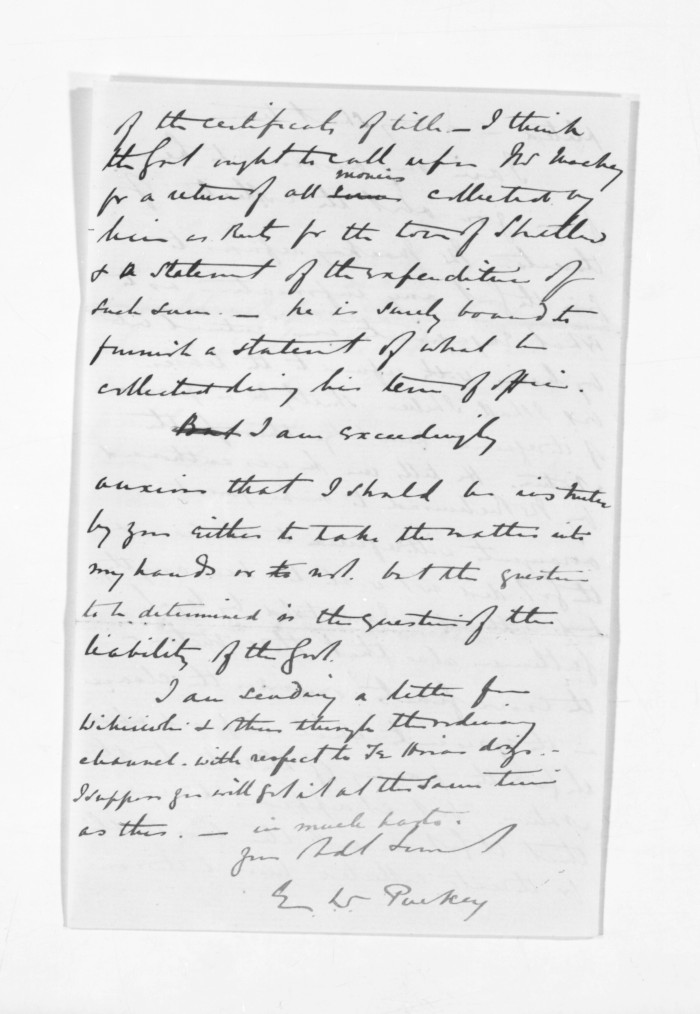 of the certificate of title. — I think
the Govt ought to call upon Mr Mackay
for a return of all sums monies collected by
him as Rents for the town of
& a statement of the expenditure of
such sum. — he is surely bound to
furnish a statement of what he
collected during his term of office.
But I am exceedingly
anxious that I should be instructed
by you either to take the matter into
my hands or to not. but the question
to be determined is the question of the
liability of the Govt.
I am sending a letter from
& others through the ordinary
channel. with respect to Te dogs. —
I suppose you will get it at the same time
as this. — in much haste.
your Obdt Servt
E W Puckey